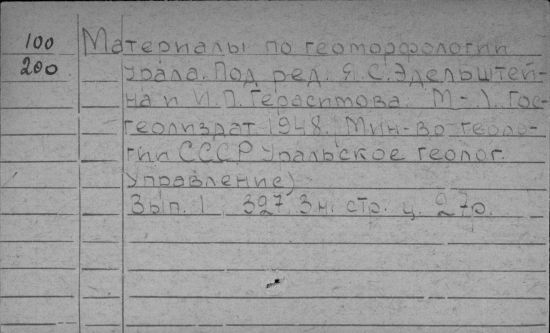 100 Материалы по геоморфологии
200 Урала. Под ред. Я.С.Эдельштей-
на и И.П.Герасимова. М-Л. Гос-
геолиздат 1948. (Мин-во геоло-
гии СССР Уральское геолог.
Управление)
Вып. 1 327 3 н. стр. ц. 27р.